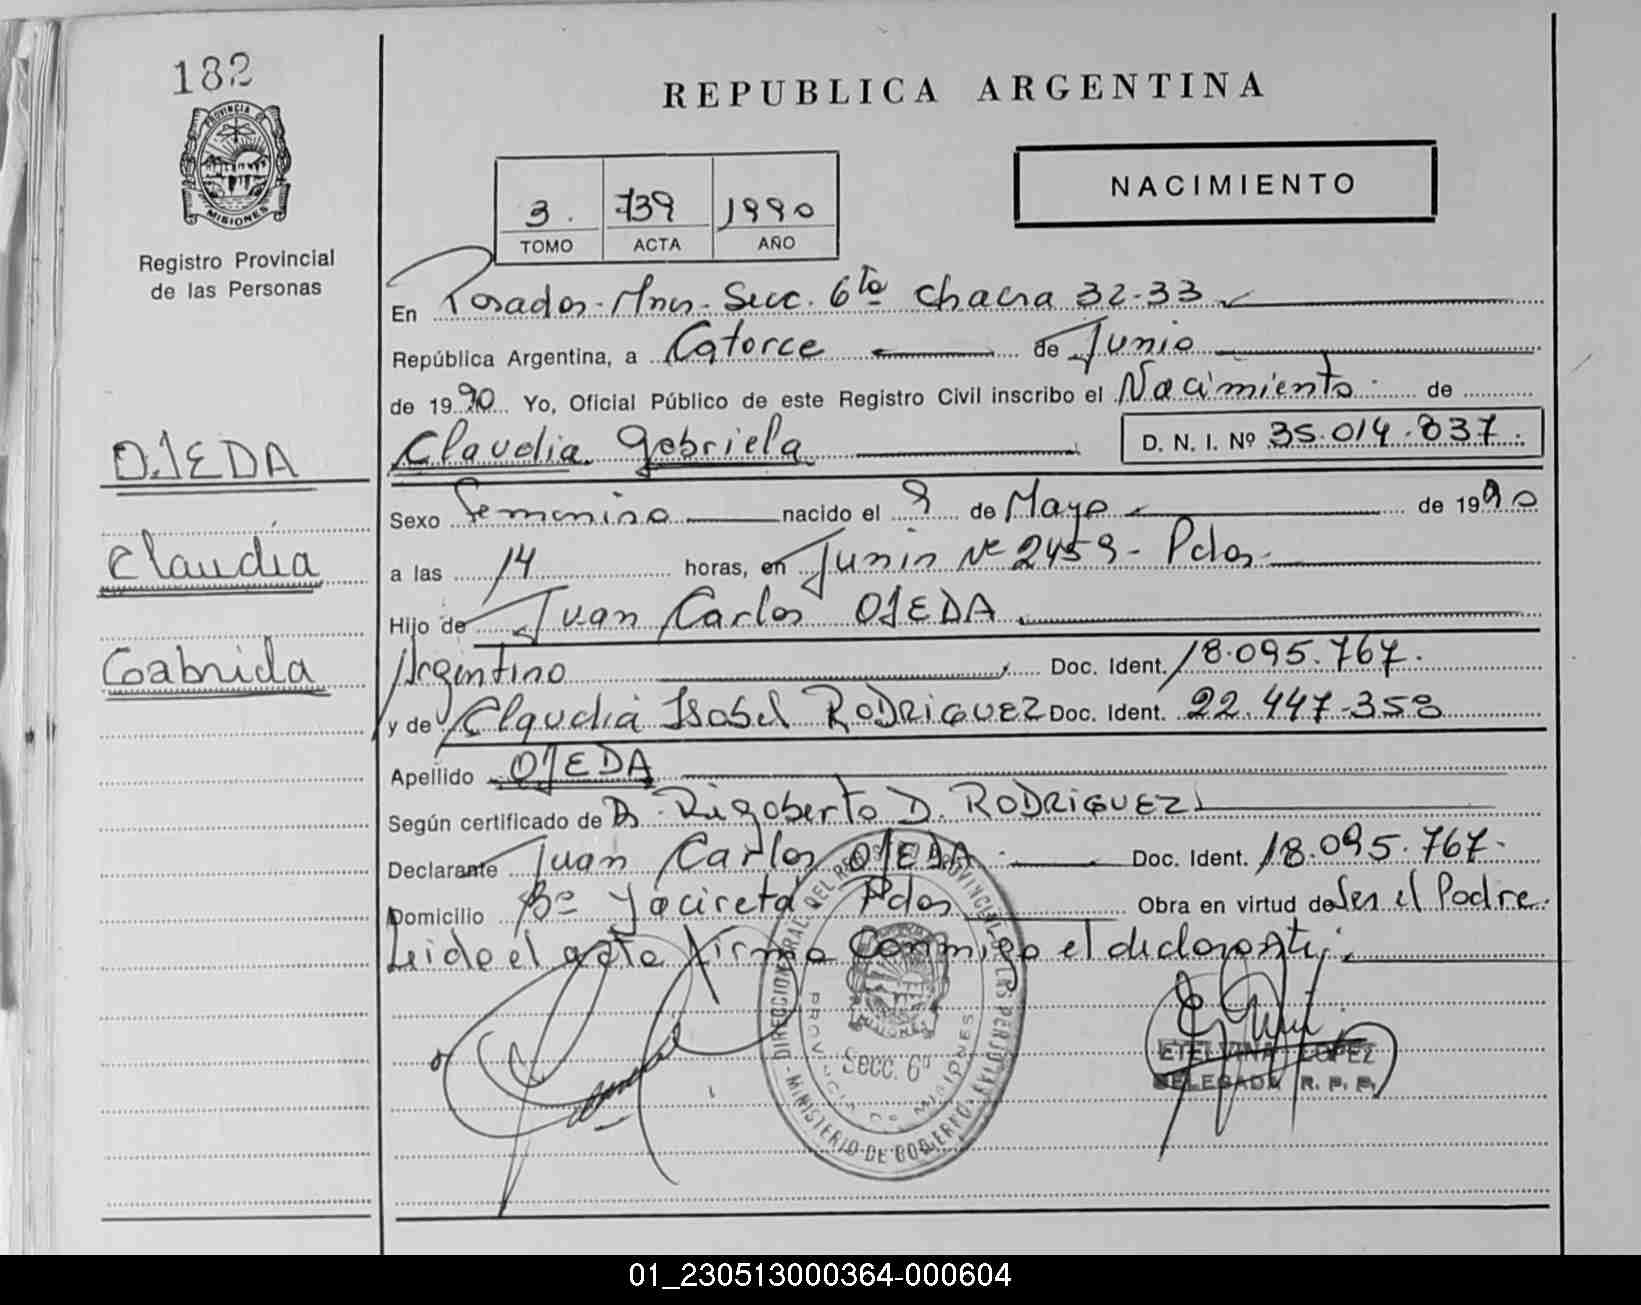 182
REPUBLICA ARGENTINA
PROVINCIA DE
MISIONES
Registro Provincial
de las Personas
3. 739 1990
TOMO ACTA AÑO
NACIMIENTO
En Posadas-Mnes-Secc. 6ta chacra 32-33
República Argentina, a Catorce de Junio
de 1990 Yo, Oficial Público de este Registro Civil inscribo el Nacimiento de
OJEDA
Claudia
Gabriela
Claudia Gabriela D. N. I. Nº 35.014.837.
Sexo Femenino nacido el 9 de Mayo de 1990
a las 14 horas, en Junin Nº 2459 - Pdas.
Hijo de Juan Carlos OJEDA
Argentino Doc. Ident. 18.095.767.
y de Claudia Isabel RODRIGUEZ Doc. Ident. 22.447.358
Apellido OJEDA
Según certificado de Dr. Rigoberto D. RODRIGUEZ
Declarante Juan Carlos OJEDA. Doc. Ident. 18.095.767.
Domicilio Bº Yacireta Pdas Obra en virtud de Ser el Padre.
Leido el acta firma Conmigo el declarante;
DIRECCION GENERAL DEL REGISTRO PROVINCIAL DE LAS PERSONAS
MINISTERIO DE GOBIERNO
PROVINCIA DE MISIONES
MISIONES
Secc. 6ª
ETELVINA LOPEZ
DELEGADA R. P. P.
01_230513000364-000604